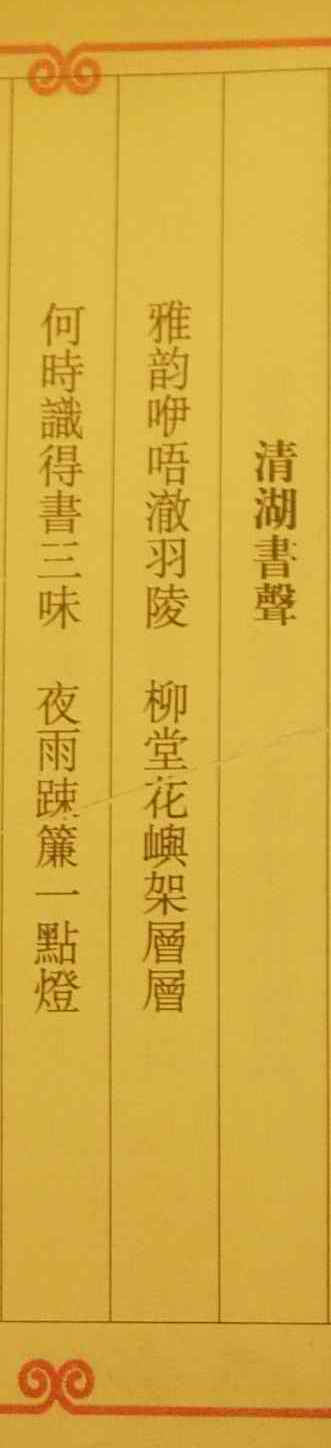 清湖書聲
雅韵咿唔澈羽陵 柳堂花嶼架層層
何時識得書三味 夜雨踈簾一點燈